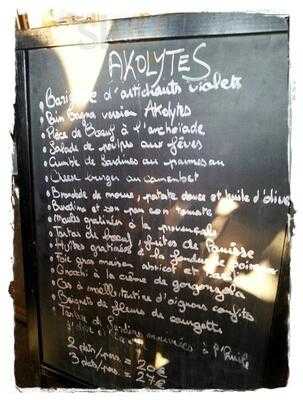 AKOLYTES
Barigoule d'artichauts violets
Bun Bagna version Akolytes
Pièce de Boeuf à l'anchoïade
Salade de poulpe aux fèves
Crumble de Sardines au parmesan
Cheese burger au camembert
Brandade de morue, patate douce et huile d'olive
Burratina et son pan con tomate
Moules gratinées à la provençal
Tartar de boeuf, frites de Panisse
Huîtres gratinées à la fondue de poireaux
Foie gras maison abricot et
Gnocchi à la crème de gorgonzola
Os à moelle, tartine d'oignons confits
Beignets de fleurs de courgette
Sardines marinées à l'huile
d'olive
2 plats/pers = 20€
3 plats/pers = 27€